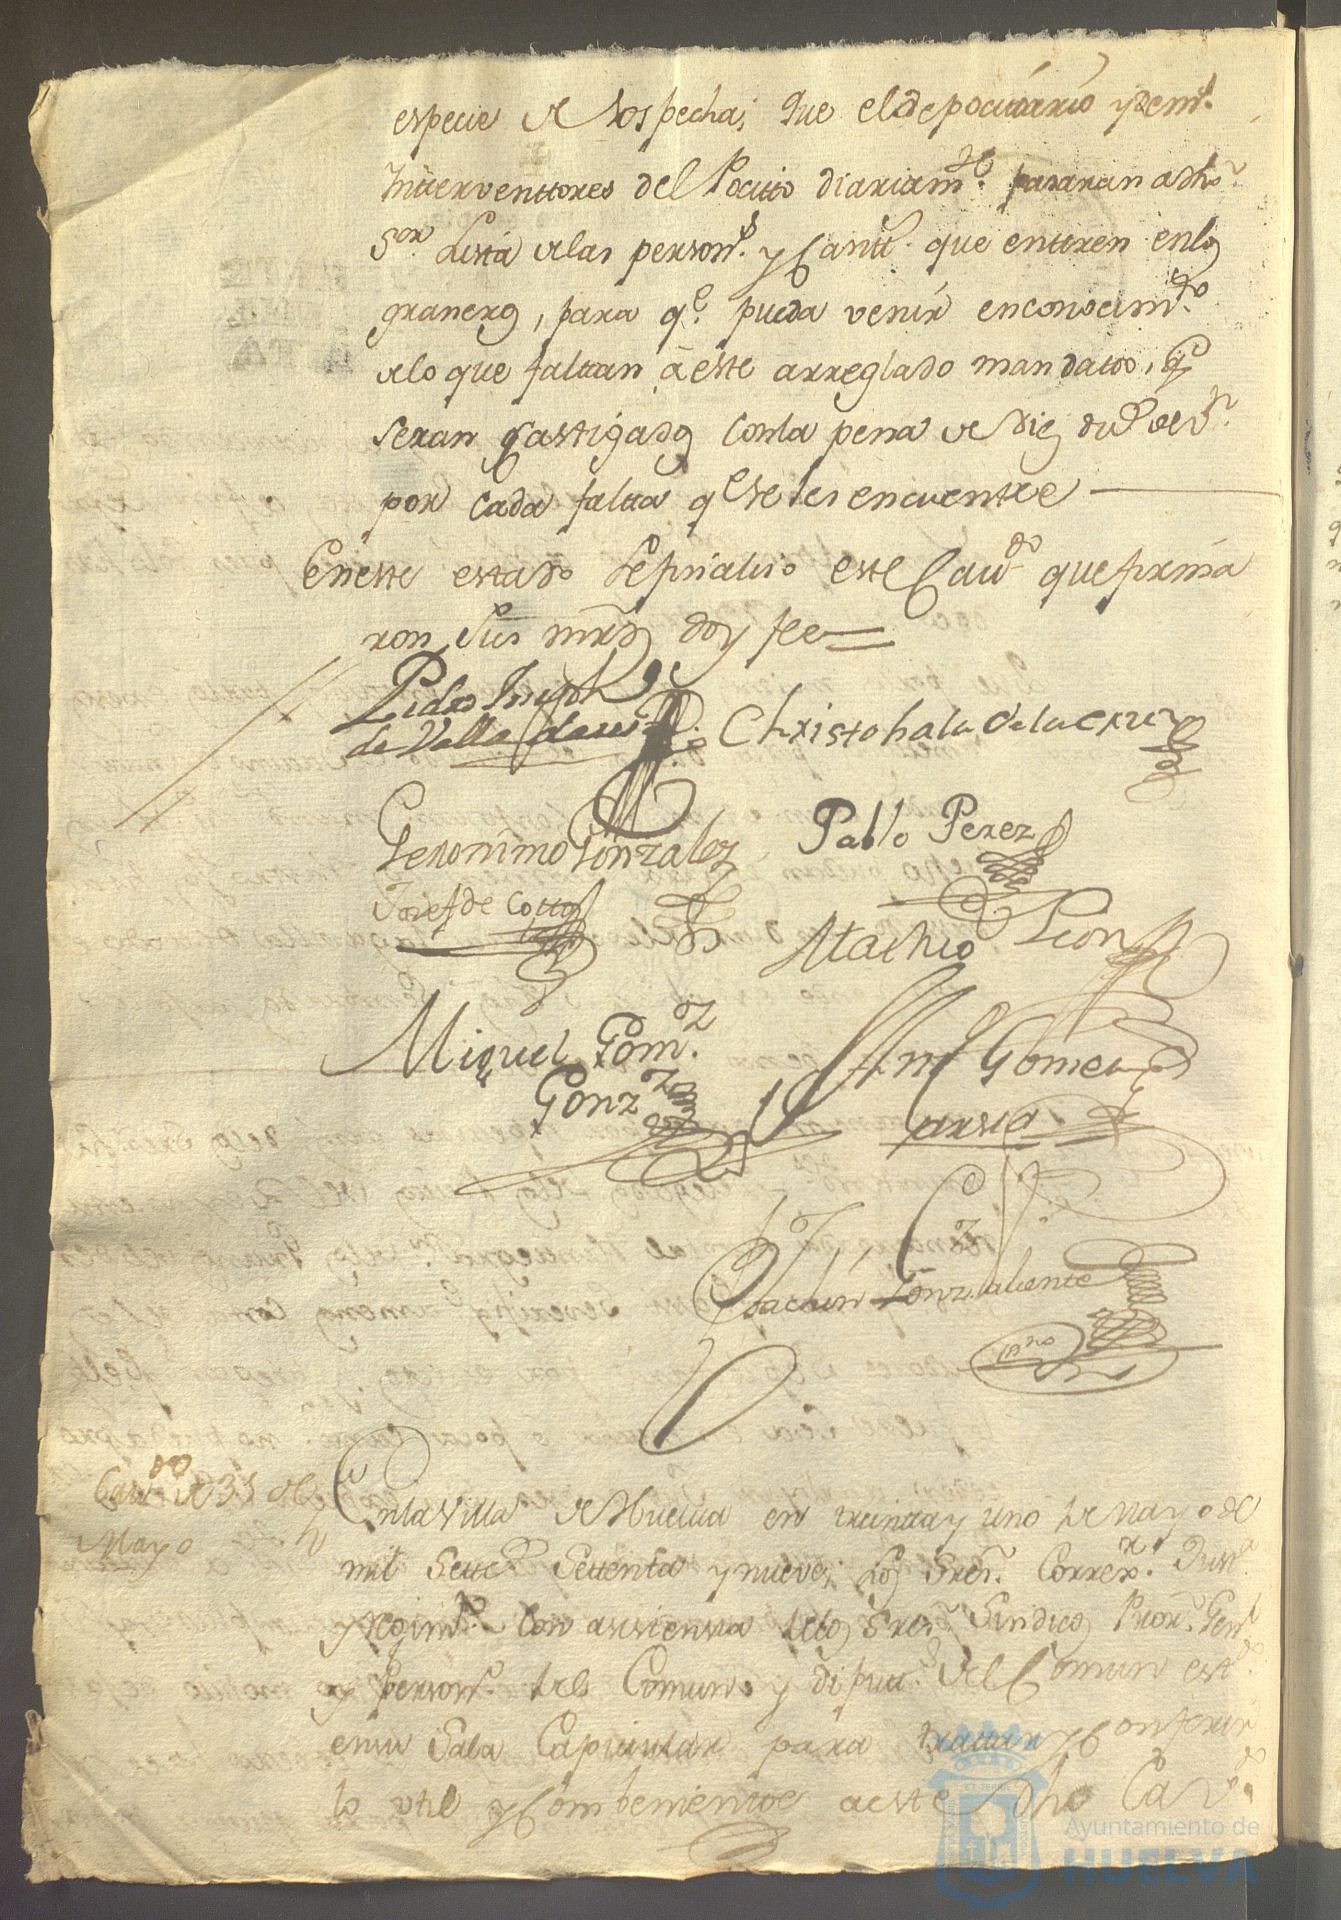 especie de sospecha; que el depocitario y dem.s
Interventtores del Pocitto diariam.te pasaran a dho
S.or Lista de las person.s y Cantt. que enttren en los
graneros, para q.e pueda venir en conocim.to
de lo que faltan à este arreglado mandatto, y
seran Castigados con la pena de Diez duc.s de v.n
por cada falta q.e se les encuentre
En este estado se finalisó este Cav.do que firma
ron sus mrds doy fee
Pedro Joseph
de Valladares
Christobal de la Cruz
Geronimo Gonzalez
Pablo Perez
Josef de Cotta
Leon
Miguel Gom.z
Gonz.z
Ant.o Gomez
Garsia
Joachin Gonz.z
Cav.do de 31 de
Mayo
En la Villa de Huelva en treinta y uno de Mayo de
mil Settec.s Settenta y nueve; los Sres. Correx.r Just.a
y Regim.to con asistensia de los Sres. Sindico Pror. Gen.l
y person.o del Comun, y diputt.s del Comun est.do
en su Sala Capitular para trattar y Conferir
lo util y Combeniente a este dho Cav.do
Ayuntamiento de
HUELVA